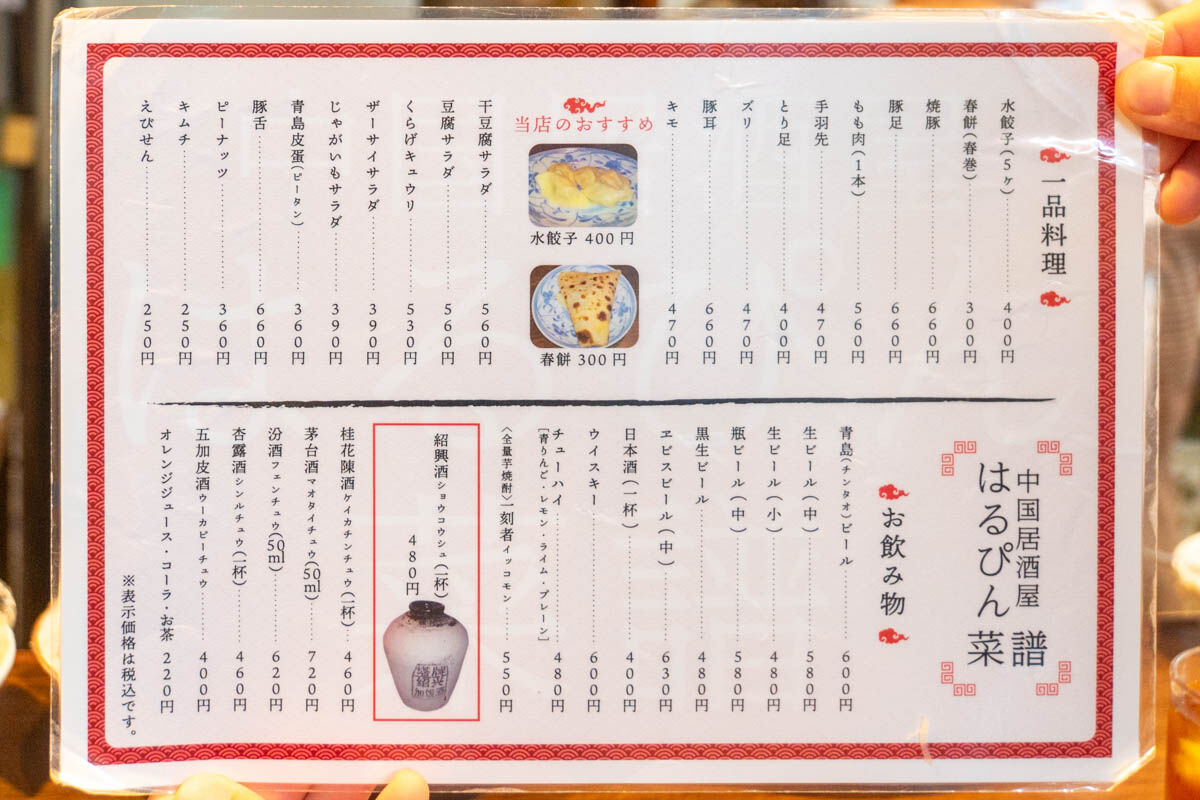 一品料理
水餃子(5ヶ) 400円
春餅(春巻) 300円
焼豚 660円
豚足 660円
もも肉(1本) 560円
手羽先 470円
とり足 400円
ズリ 470円
豚耳 660円
キモ 470円
当店のおすすめ
水餃子 400円
春餅 300円
干豆腐サラダ 560円
豆腐サラダ 560円
くらげキュウリ 530円
ザーサイサラダ 390円
じゃがいもサラダ 390円
青島皮蛋(ピータン) 360円
豚舌 660円
ピーナッツ 360円
キムチ 250円
えびせん 250円
中国居酒屋
はるぴん
菜譜
お飲み物
青島(チンタオ)ビール 600円
生ビール(中) 580円
生ビール(小) 480円
瓶ビール(中) 580円
黒生ビール 480円
ヱビスビール(中) 630円
日本酒(一杯) 400円
ウイスキー 600円
チューハイ 480円
[青りんご・レモン・ライム・プレーン]
〈全量芋焼酎〉一刻者イッコモン 550円
紹興酒ショウコウシュ(一杯)
480円
桂花陳酒ケイカチンチュウ(一杯) 460円
茅台酒マオタイチュウ(50ml) 720円
汾酒フェンチュウ(50ml) 620円
杏露酒シンルチュウ(一杯) 460円
五加皮酒ウーカピーチュウ 400円
オレンジジュース・コーラ・お茶 220円
※表示価格は税込です。